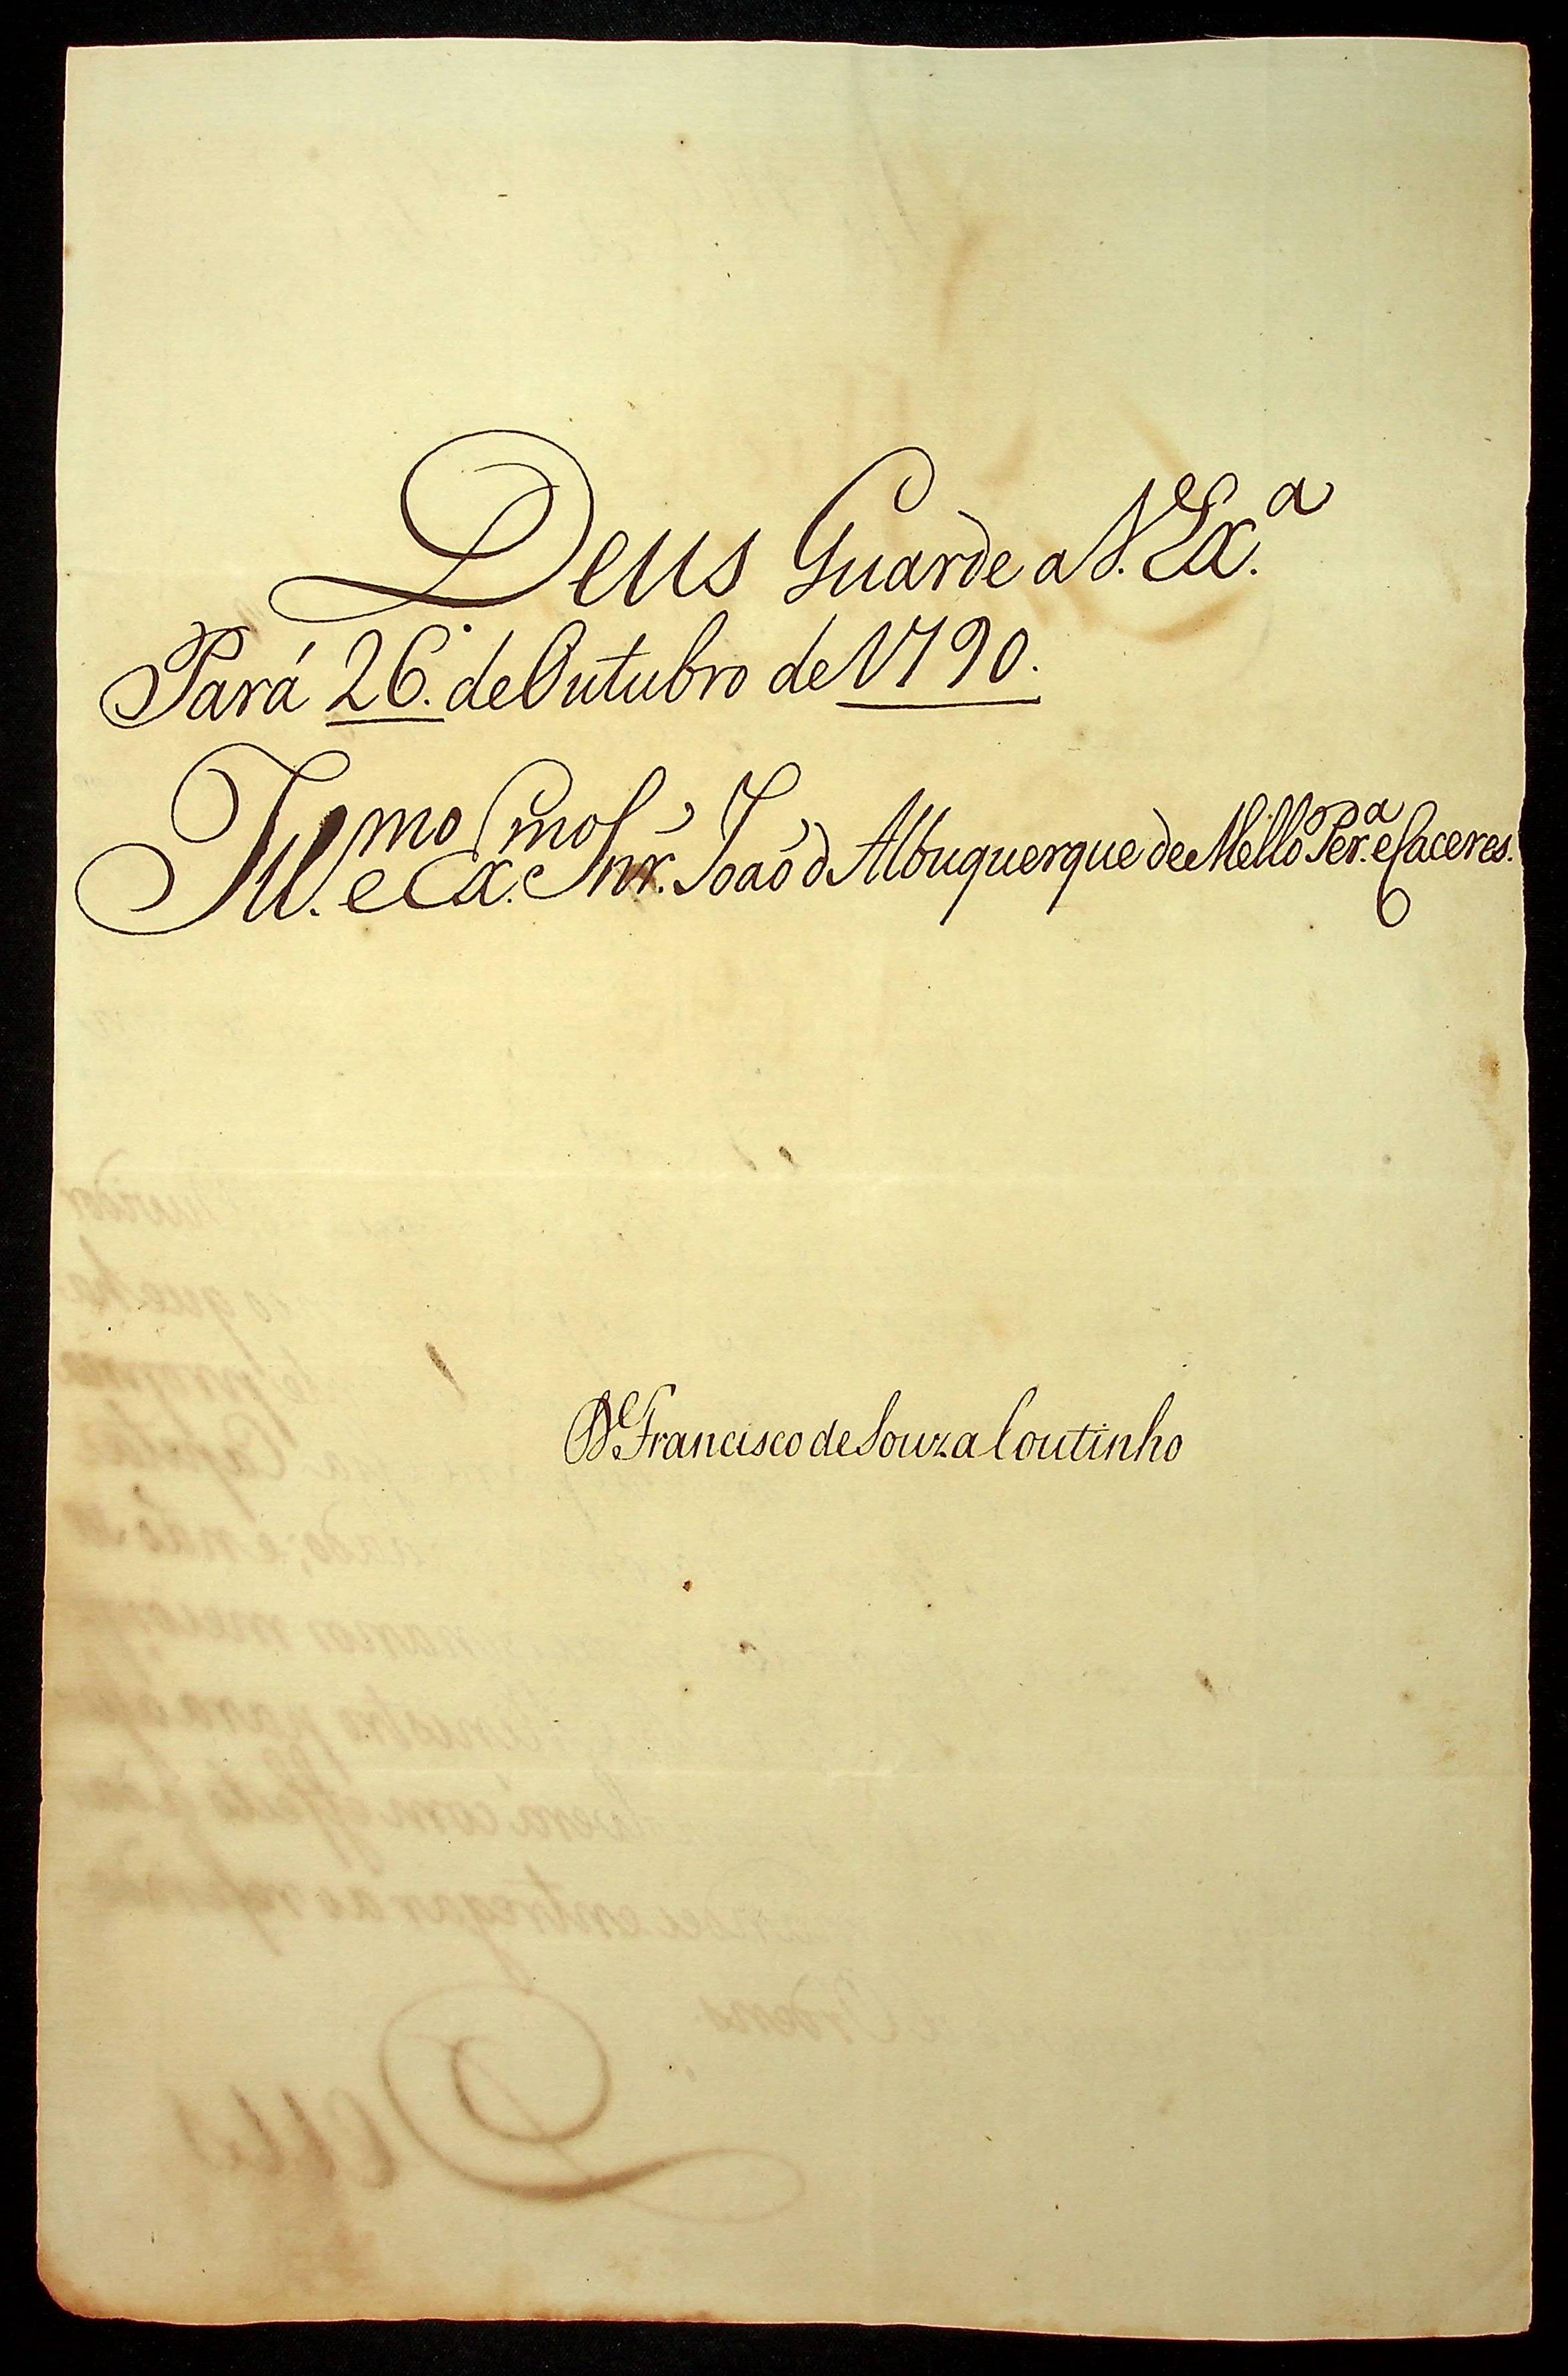 Deus Guarde a V. Ex.ª
Pará 26. de Outubro de 1790.
Ill.mo e Ex.mo Snr. João d'Albuquerque de Mello Per.ª e Caceres.
D. Francisco de Souza Coutinho